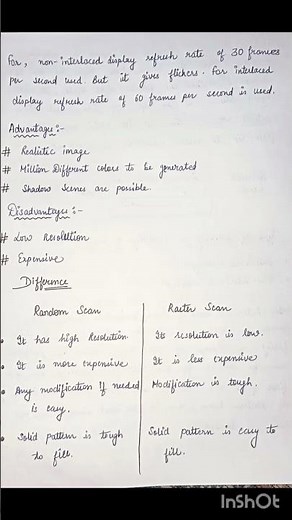 For, non-interlaced display refresh rate of 30 frames
per second used but it gives flickers. For interlaced
display refresh rate of 60 frames per second is used.
Advantages:-
# Realistic image
# Million Different colors to be generated
# Shadow Scenes are possible.
Disadvantages:-
# Low Resolution
# Expensive
Difference
Random Scan
Raster Scan
• It has high Resolution.
Its resolution is low.
• It is more expensive
It is less expensive
• Any modification if needed
is easy.
Modification is tough.
• Solid pattern is tough
to fill.
Solid pattern is easy to
fill.
InShOt